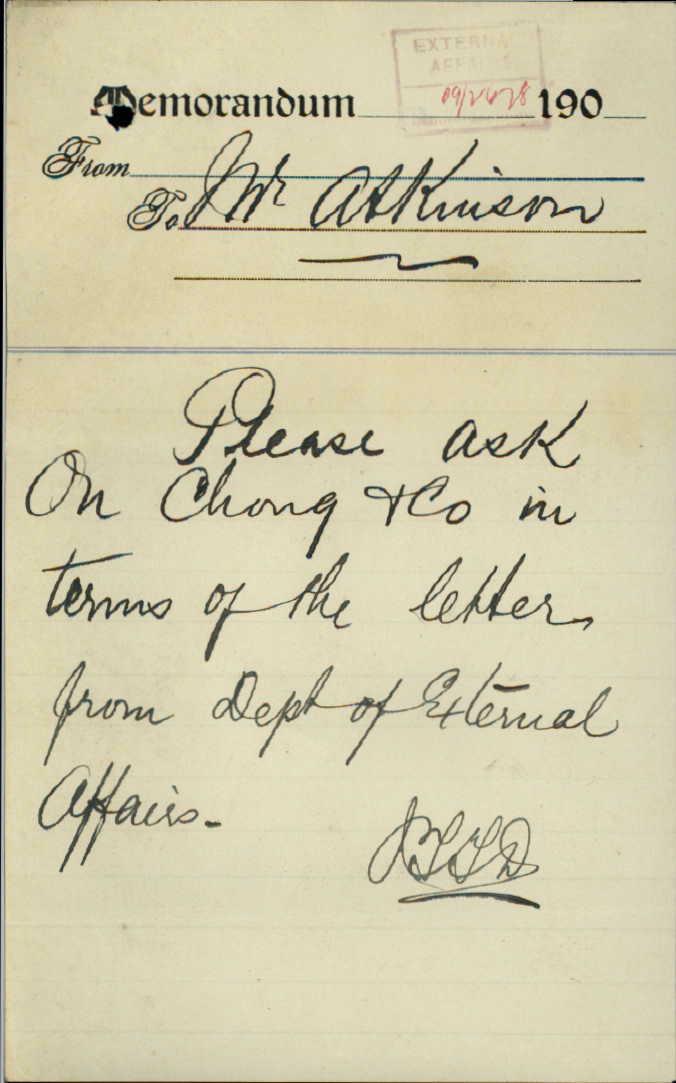 EXTERNAL
AFFAIRS
Memorandum 190
From
To Mr Atkinson
Please ask
On Chong & Co in
terms of the letter
from Dept of External
Affairs.